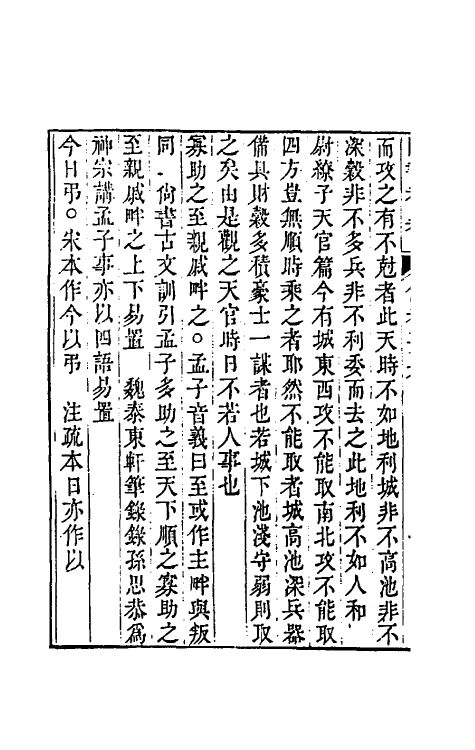 而攻之有不尅者此天時不如地利城非不高池非不
深穀非不多兵非不利委而去之此地利不如人和
尉繚子天官篇今有城東西攻不能取南北攻不能取
四方豈無順時乘之者耶然不能取者城高池深兵器
備具財穀多積豪士一謀者也若城下池淺守弱則取
之矣由是觀之天官時日不若人事也
寡助之至親戚畔之○孟子音義曰至或作主畔與叛
同．尙書古文訓引孟子多助之至天下順之寡助之
至親戚畔之上下易置　魏泰東軒筆錄錄孫思恭爲
神宗講孟子事亦以四語易置
今日弔○宋本作今以弔　注疏本日亦作以